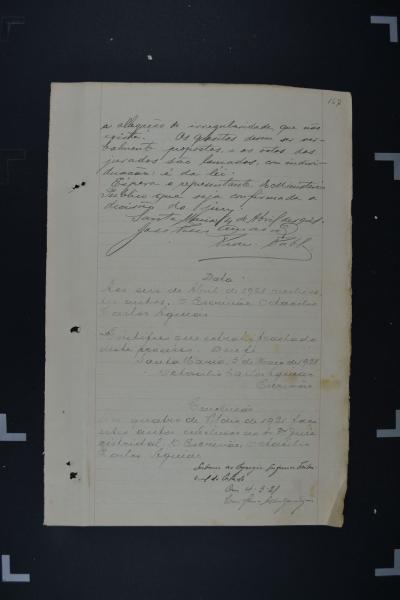 167
a allegação de irregularidade que não
existe. Os quesitos devem ser ver-
balmente propostos e os votos dos
jurados são tomados, com indivi-
duação: é da lei.
Espera o representante do Ministerio
Publico que seja confirmada a
decisão do Jury.
Santa Maria, de Abril de 1921.
José
Data
Aos seis de Abril de 1921 recebi es-
tes autos. O Escrivão Octacilio
Carlos Aguiar
Certifico que extrahi traslado
deste processo. Dou fé.
Santa Maria, 3 de Maio de 1921
Octacilio Carlos Aguiar
Escrivão
Conclusão
Aos quatro de Maio de 1921 faço
estes autos conclusos ao Dr Juiz
districtal. O Escrivão, Octacilio
Carlos Aguiar
Subam ao Egregio Superior Tribu-
nal do Estado
Em 4-5-21